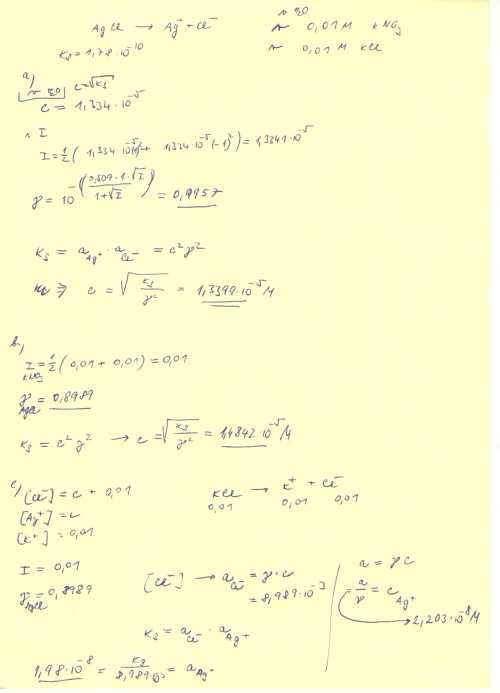 AgCl → Ag⁺ + Cl⁻
Ks = 1,78·10⁻¹⁰
0,01M KNO₃
0,01 M KCl
a)
c = √Ks
c = 1,334·10⁻⁵
I = ½( 1,334·10⁻⁵(1)² + 1,334·10⁻⁵(-1)²) = 1,3341·10⁻⁵
γ = 10^-(0,509·1·√I / 1+√I) = 0,9957
Ks = a Ag⁺ · a Cl⁻ = c²γ²
c = √(Ks/γ²) = 1,3399·10⁻⁵M
b)
I KNO₃ = ½( 0,01 + 0,01) = 0,01
γ AgCl = 0,8989
Ks = c²γ² → c = √(Ks/γ²) = 1,4842·10⁻⁵M
c) [Cl⁻] = c + 0,01
[Ag⁺] = c
[K⁺] = 0,01
KCl → K⁺ + Cl⁻
0,01 0,01 0,01
I = 0,01
γ AgCl = 0,8989
[Cl⁻] → a Cl⁻ = γ·c
= 8,989·10⁻³
Ks = a Cl⁻ · a Ag⁺
1,98·10⁻⁸ = Ks / 8,989·10⁻³ = a Ag⁺
a = γ c
a/γ = c Ag⁺
2,203·10⁻⁸M